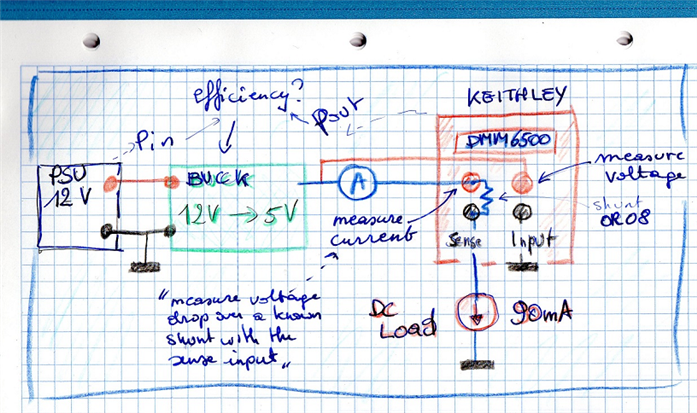 efficiency?
Pin
Pout
KEITHLEY
DMM6500
PSU
12 V
BUCK
12V → 5V
A
measure
current
measure
voltage
shunt
0R08
Sense
Input
"measure voltage
drop over a known
shunt with the
sense input"
DC
Load
90mA